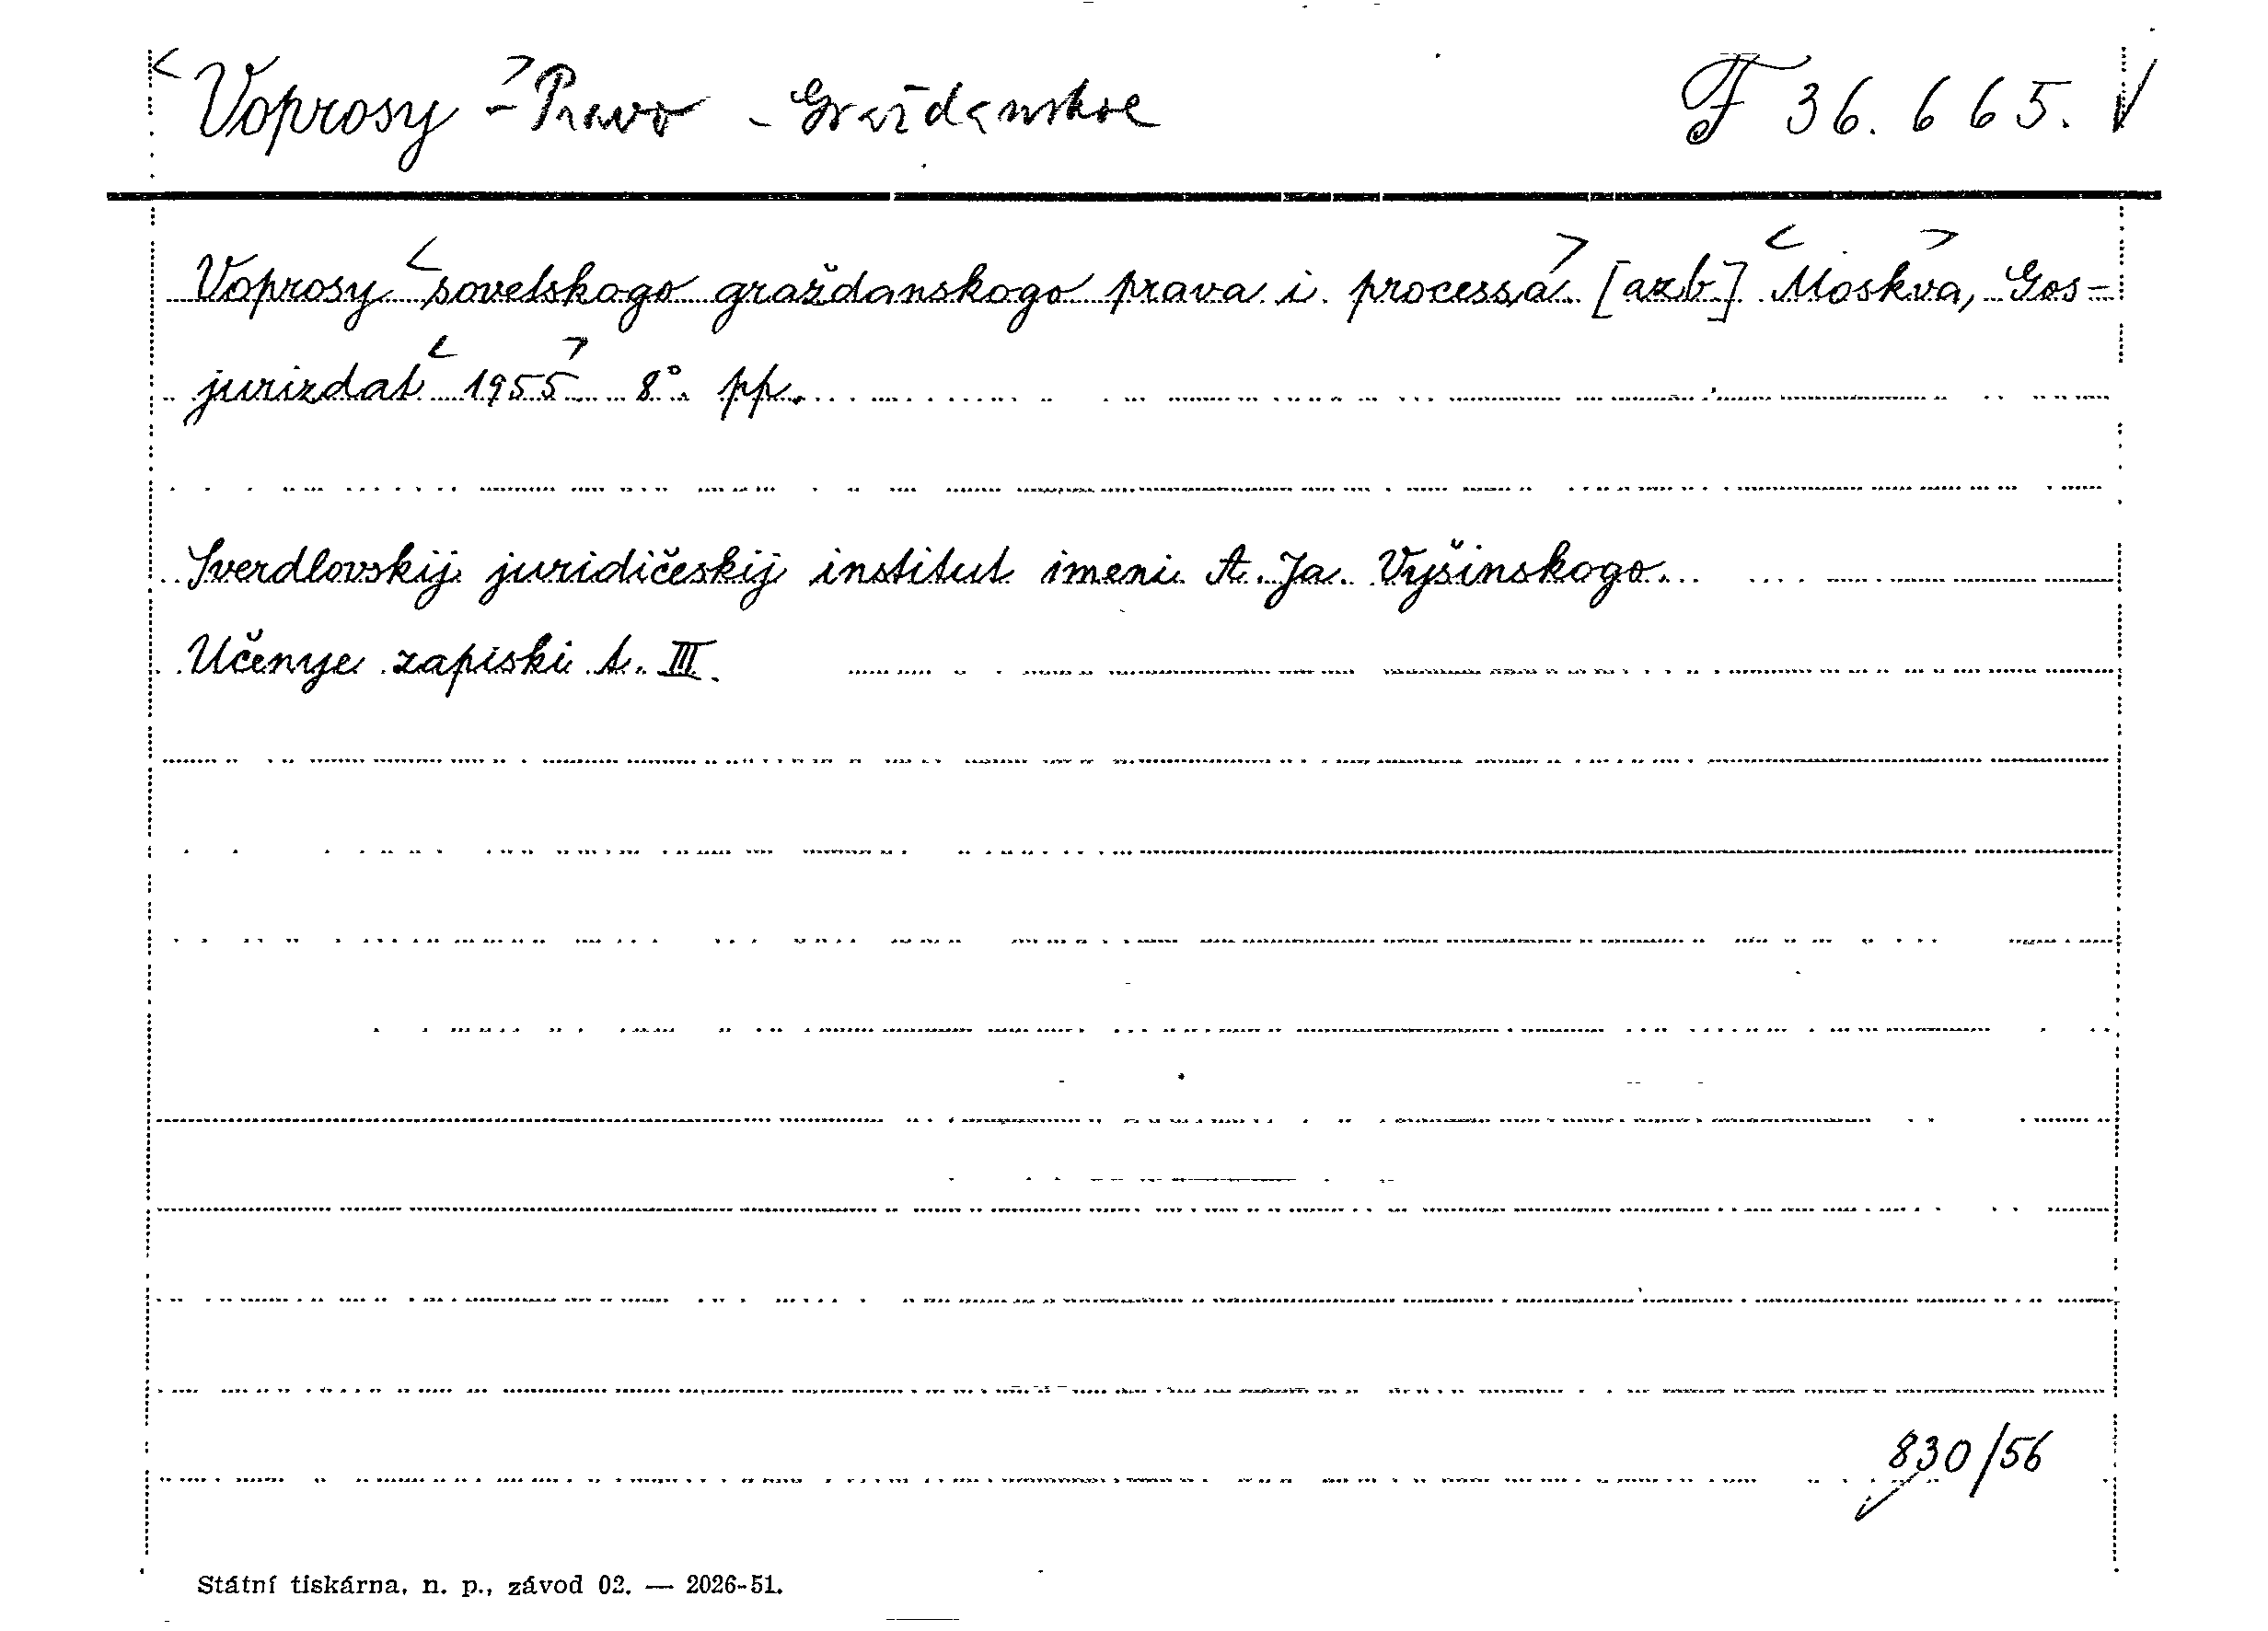 <Voprosy> - Pravo - Graždanskoe F 36.665. √
Voprosy <sovetskogo graždanskogo prava i processa> [azb] <Moskva>, Gos-
jurizdat <1955> 8°. pp.
Sverdlovskij juridičeskij institut imeni A. Ja. Vyšinskogo.
Učenye zapiski t. III.
830/56
Státní tiskárna, n. p., závod 02. — 2026-51.